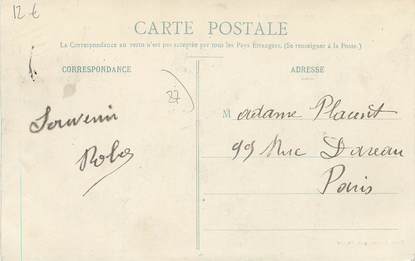 12 €
CARTE POSTALE
La Correspondance au verso n'est pas acceptée par tous les Pays Étrangers. (Se renseigner à la Poste.)
CORRESPONDANCE
ADRESSE
87
Souvenir
Madame Placent
99 Rue Dareau
Paris